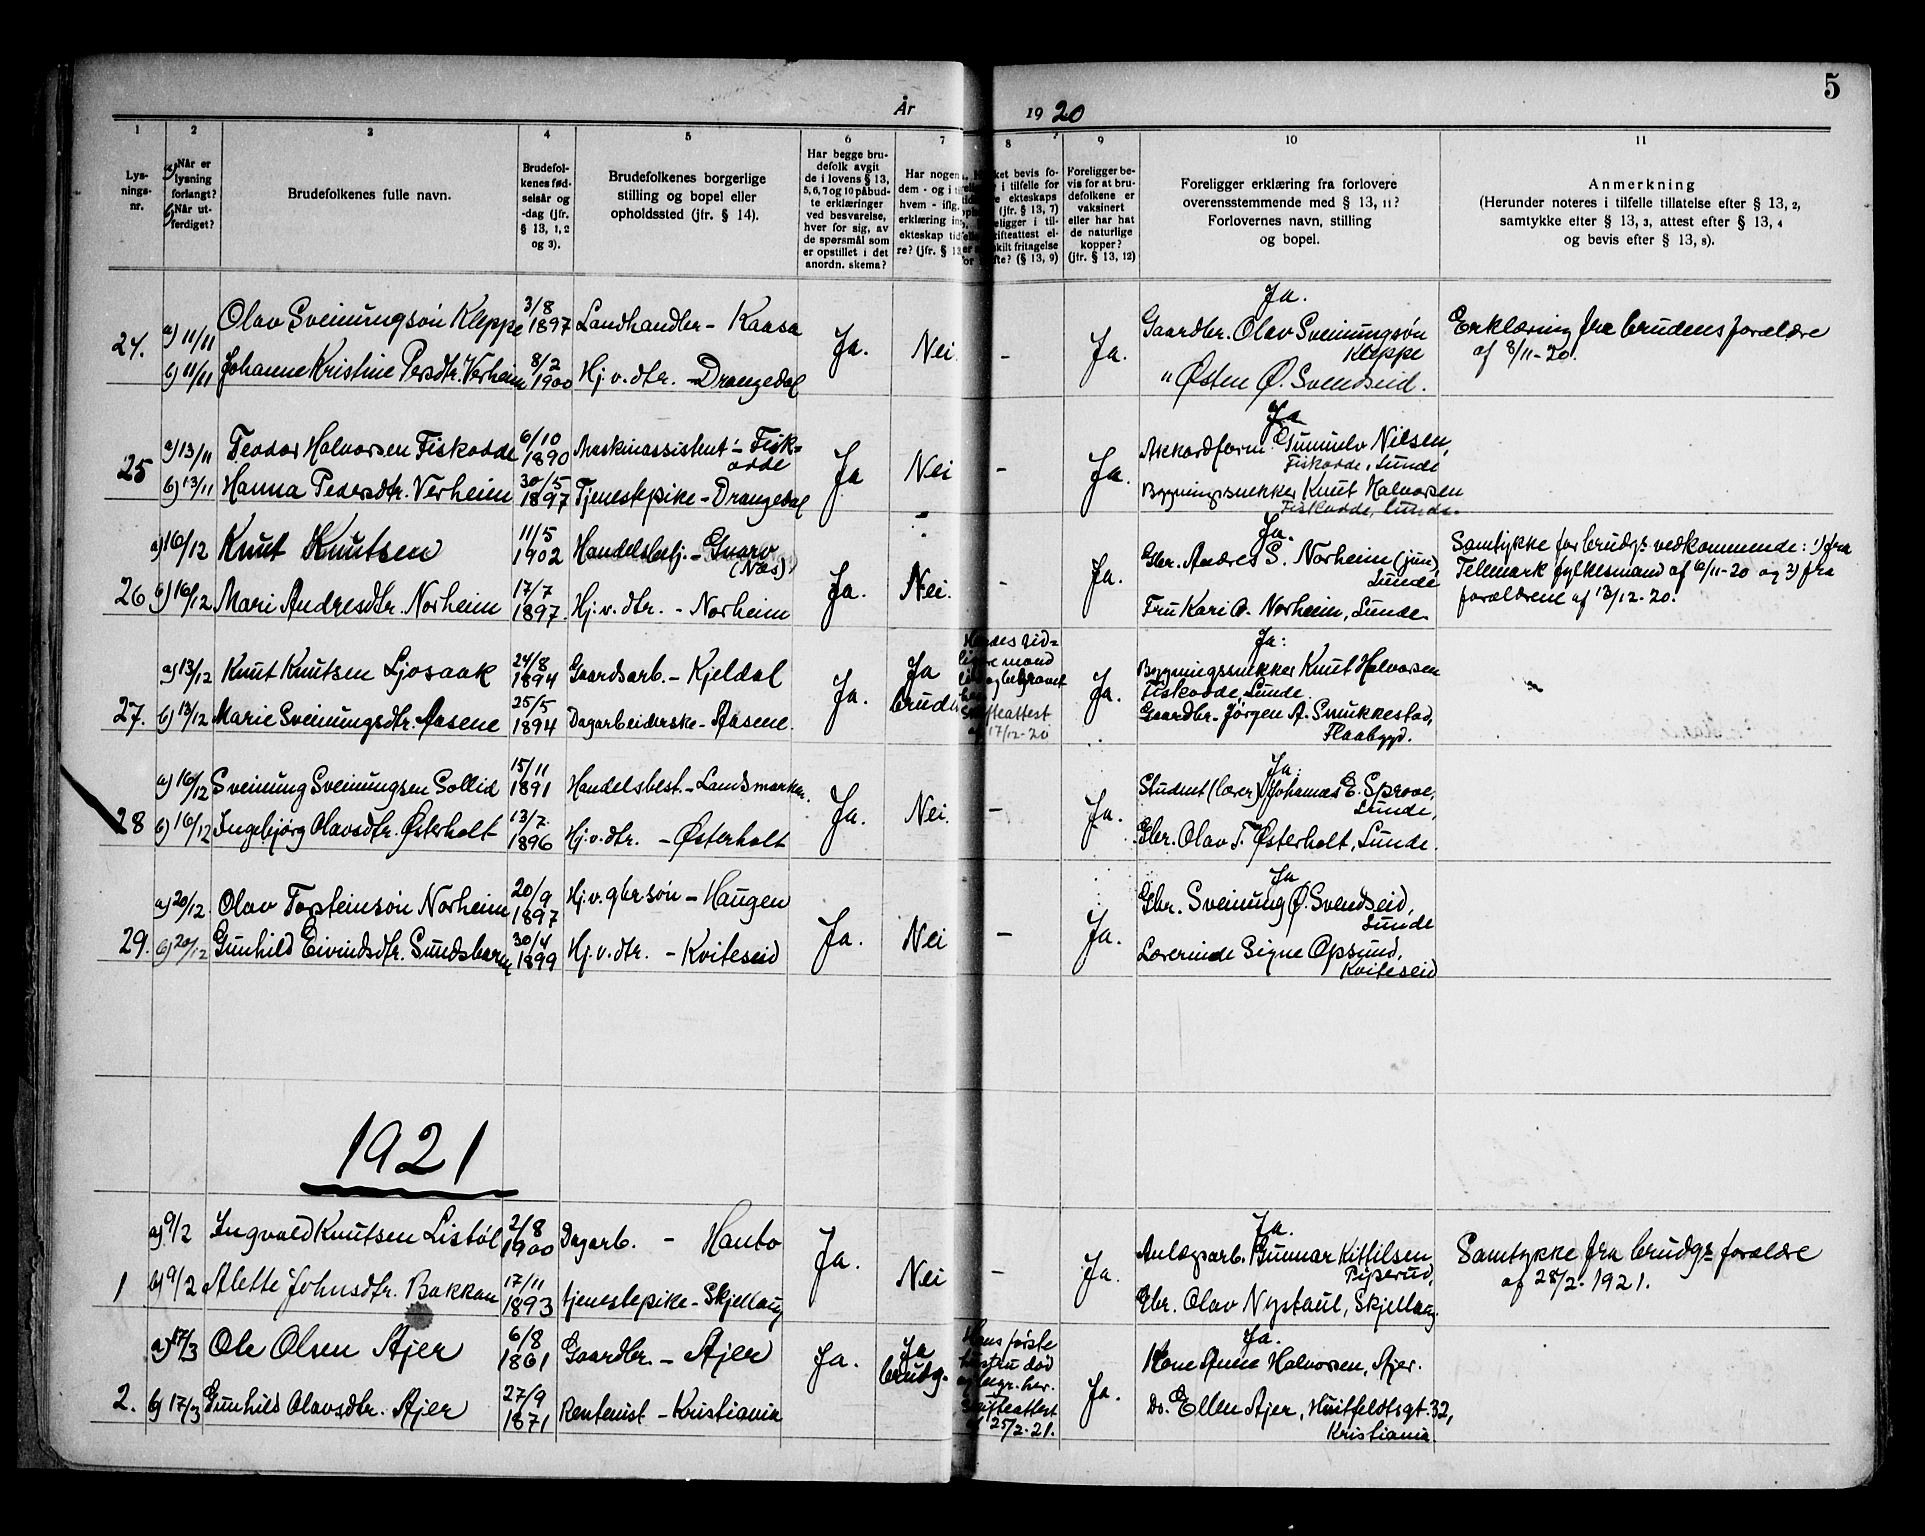 5
År 1920
1 2 3 4 5 6 7 8 9 10 11
Lys-
nings-
nr.
a) Når er
lysning
forlangt?
b) Når ut-
ferdiget?
Brudefolkenes fulle navn.
Brudefol-
kenes fød-
selsår og
-dag (jfr.
§ 13, 1, 2
og 3).
Brudefolkenes borgerlige
stilling og bopel eller
opholdssted (jfr. § 14).
Har begge bru-
defolk avgit
de i lovens § 13,
5, 6, 7 og 10 påbud-
te erklæringer
ved besvarelse,
hver for sig, av
de spørsmål som
er opstillet i det
anordn. skema?
Har nogen
dem - og i
hvem - iflg.
erklæring in
ekteskap tid
re? (jfr. § 13
ket bevis fo-
i tilfelle for
ekteskaps
(jfr. § 13, 7)
religger i til-
skifteattest el-
skilt fritagelse
fte? (§ 13, 9)
Foreligger be-
vis for at bru-
defolkene er
vaksinert
eller har hat
de naturlige
kopper?
(jfr. § 13, 12)
Foreligger erklæring fra forlovere
overensstemmende med § 13, 11?
Forlovernes navn, stilling
og bopel.
Anmerkning
(Herunder noteres i tilfelle tillatelse efter § 13, 2,
samtykke efter § 13, 3, attest efter § 13, 4
og bevis efter § 13, 8).
24.
a) 11/11 Olav Sveinungsøn Kleppe 3/8 1897 Landhandler - Kaasa
b) 11/11 Johanne Kristine Persdtr. Verheim 8/2 1900 Hj. v. dtr. - Drangedal
Ja. Nei. - Ja.
Ja.
Gaardbr. Olav Sveinungsøn
Kleppe
" Østen Ø. Svendseid.
Erklæring fra brudens forældre
af 8/11-20.
25
a) 13/11 Teodor Halvorsen Fiskodde 6/10 1890 Maskinassistent - Fisk-
odde
b) 13/11 Hanna Pedersdtr. Verheim 30/5 1897 Tjenestepike - Drangedal
Ja Nei - Ja.
Ja
Akkordform. Gunnulv Nilsen,
Fiskodde, Lunde
Bygningssnekker Knut Halvorsen
Fiskodde, Lunde.
26
a) 16/12 Knut Knutsen 11/5 1902 Handelsbetj. - Gvarv
(Nes)
b) 16/12 Mari Andresdtr. Norheim 17/7 1897. Hj. v. dtr. - Norheim
Ja. Nei. - Ja.
Ja.
Gbr. Andres S. Norheim (jun)
Lunde
Fru Kari O. Norheim, Lunde
Samtykke for brudgs vedkommende: 1) fra
Telemark fylkesmand af 6/11-20 og 2) fra
forældrene af 13/12-20.
27.
a) 13/12 Knut Knutsen Ljosaak 24/8 1894 Gaardsarb. - Kjeldal
b) 13/12 Marie Sveinungsdtr. Aasene 25/5 1894 Dagarbeiderske - Aasene.
Ja. Ja
brud
mand
og begravet
Skifteattest
af 17/12-20
Ja.
Ja:
Bygningssnekker Knut Halvorsen
Fiskodde, Lunde.
Gaardbr. Jørgen A. Snukkestad,
Flaabygd.
28
a) 16/12 Sveinung Sveinungsen Sollid 15/11 1891 Handelsbest. - Landsmarken.
b) 16/12 Ingebjørg Olavsdtr. Østerholt 13/7. 1896 Hj. v. dtr. - Østerholt
Ja. Nei. - Ja.
Ja:
Student (lærer) Johannes E. Sprove,
Lunde,
Gbr. Olav T. Østerholt, Lunde.
29.
a) 20/12 Olav Torsteinsøn Norheim 20/9 1897 Hj. v. gbr søn - Haugen
b) 20/12 Gunhild Eivindsdtr. Sundsbarm 30/4 1899 Hj. v. dtr. - Kviteseid
Ja. Nei - Ja.
Ja
Gbr. Sveinung Ø. Svendseid,
Lunde
Lærerinde Signe Opsund,
Kviteseid
1921
1
a) 9/2 Ingvald Knutsen Listøl 2/8 1900 Dagarb. - Hanto
b) 9/2 Alette Johnsdtr. Bakkan 17/11 1893 tjenestepike - Skjellaug
Ja. Nei - Ja.
Ja.
Anlægsarb. Gunnar Kittilsen
Piperud,
Gbr. Olav Nystaul, Skjellaug
Samtykke fra brudgs forældre
af 28/2. 1921.
2.
a) 17/3 Ole Olsen Ajer 6/8 1861 Gaardbr. - Ajer
b) 17/3 Gunhild Olavsdtr. Ajer 27/9 1871 Rentenist - Kristiania
Ja. Ja
brudg.
Hans første
hustru død
og begr. her.
Skifteattest
af 25/2-21.
Ja.
Ja.
Kone Anne Halvorsen, Ajer.
Do. Ellen Ajer, Huitfeldtsgt. 32,
Kristiania.